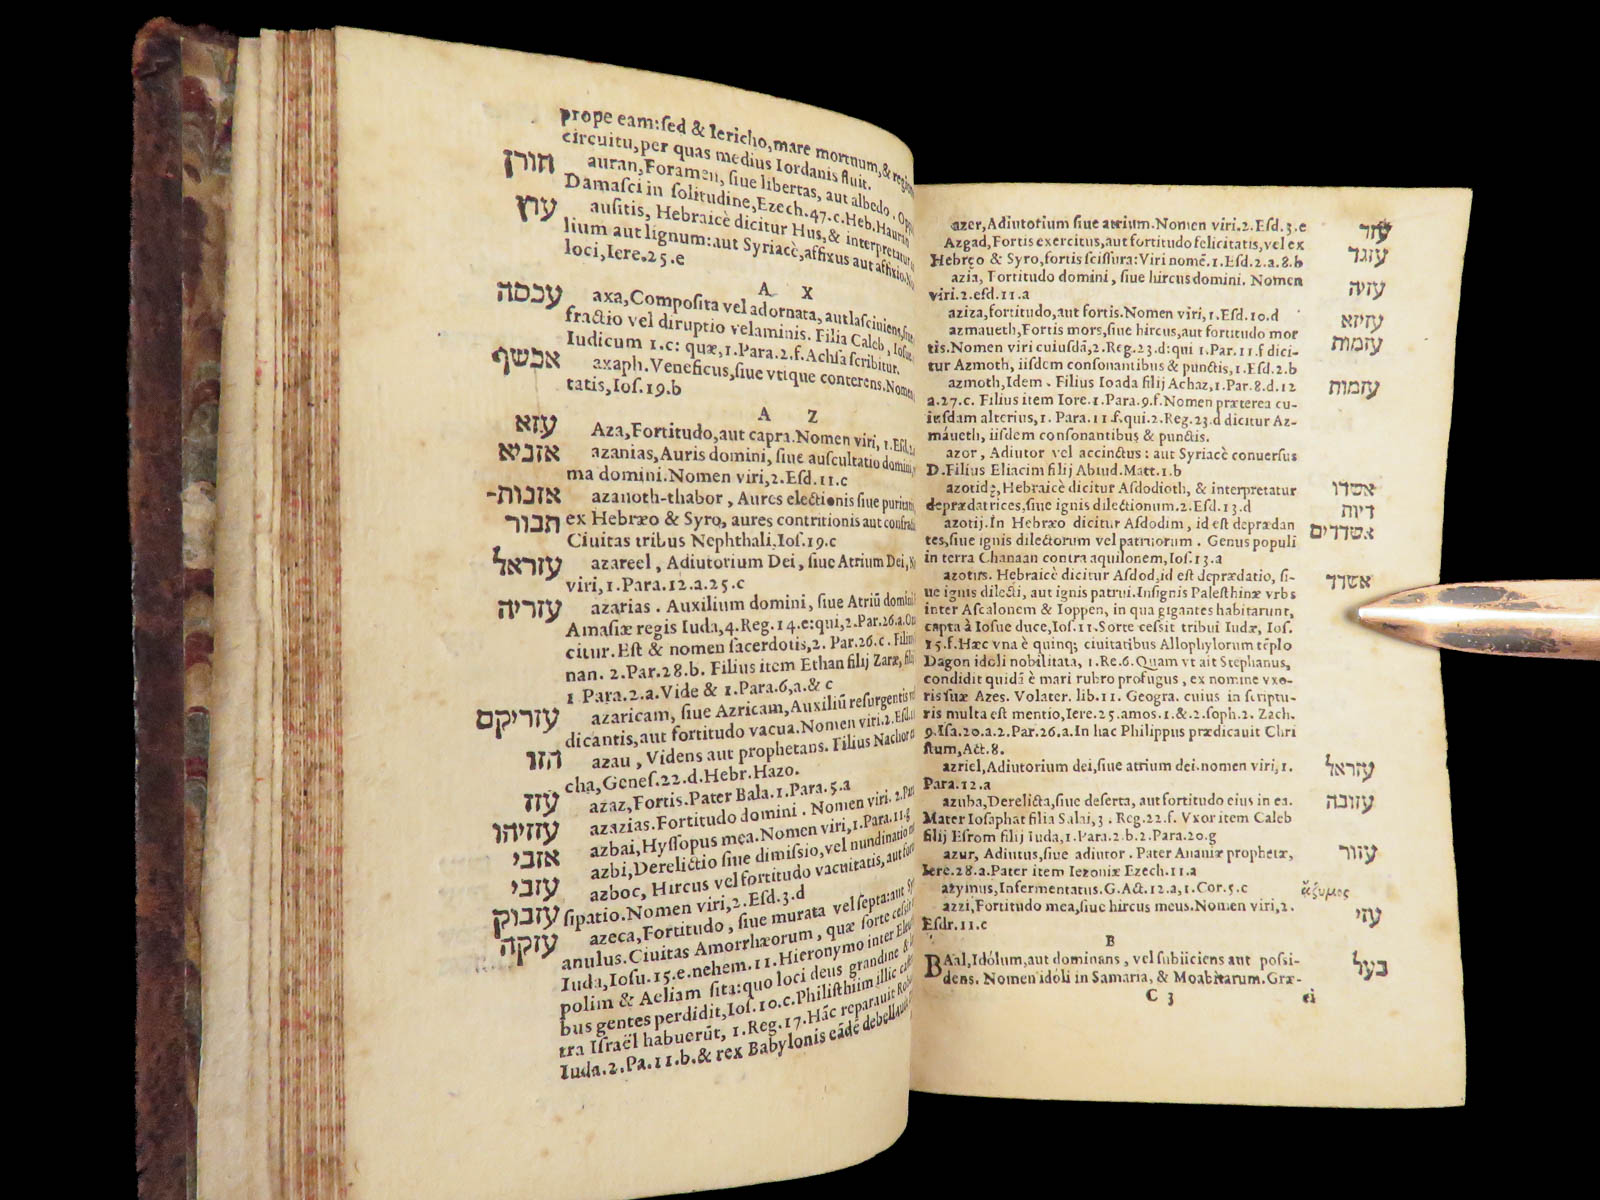 prope eam:sed & Iericho,mare mortuum,&
circuitu,per quas medius Iordanis fluit.
חורן auran,Foramen, siue libertas, aut albedo.
Damasci in solitudine,Ezech.47.c.Heb.Hauran
עוץ ausitis, Hebraicè dicitur Hus,& interpretatur
lium aut lignum:aut Syriacè,affixus aut affixio.
loci,Iere.25.e
A X
עכסה axa,Composita vel adornata, aut lasciuiens,
fractio vel diruptio velaminis. Filia Caleb, Iosue
Iudicum 1.c: quæ,1.Para.2.f.Achsa scribitur.
אכשף axaph. Veneficus,siue vtique conterens.
tatis,Ios.19.b
A Z
עזא Aza,Fortitudo,aut capra.Nomen viri, 1.Esd.2.
אזניא azanias,Auris domini, siue auscultatio domini,
ma domini.Nomen viri,2.Esd.11.c
אזנות- azanoth-thabor, Aures electionis siue puritatis
תבור ex Hebræo & Syro, aures contritionis aut
Ciuitas tribus Nephthali,Ios.19.c
עזראל azareel, Adiutorium Dei, siue Atrium Dei,
viri,1.Para.12.a.25.c
עזריה azarias. Auxilium domini, siue Atriũ domini
Amasiæ regis Iuda,4.Reg.14.e:qui,2.Par.26.a.
citur.Est & nomen sacerdotis,2. Par.26.c. Filius
nan. 2.Par.28.b. Filius item Ethan filij Zaræ,
1 Para.2.a.Vide & 1.Para.6,a.& c
עזריקם azaricam, siue Azricam,Auxiliũ resurgentis
dicantis,aut fortitudo vacua.Nomen viri.2.Esd.11
הזו azau, Videns aut prophetans. Filius Nachor
cha,Genes.22.d.Hebr.Hazo.
עזז azaz,Fortis.Pater Bala.1.Para.5.a
עזזיהו azazias.Fortitudo domini. Nomen viri. 2.Par
אזבי azbai,Hyssopus mea.Nomen viri,1.Para.11.g
עזבי azbi,Derelictio siue dimissio,vel nundinatio
עזבוק azboc, Hircus vel fortitudo vacuitatis,aut
sipatio.Nomen viri,2.Esd.3.d
עזקה azeca,Fortitudo, siue murata vel septa:aut
anulus. Ciuitas Amorrhæorum, quæ sorte cessit
Iuda,Iosu.15.e.nehem.11.Hieronymo inter
polim & Aeliam sita:quo loci deus grandine &
bus gentes perdidit,Ios.10.c.Philisthiim illic
tra Israël habuerũt, 1.Reg.17.Hãc reparauit
Iuda.2.Pa.11.b.& rex Babylonis eãdẽ debellauit
azer,Adiutorium siue atrium.Nomen viri.2.Esd.3.e עזר
Azgad,Fortis exercitus,aut fortitudo felicitatis,vel ex עזגד
Hebręo & Syro,fortis scissura:Viri nomẽ.1.Esd.2.a.8.b
azia, Fortitudo domini, siue hircus domini. Nomen עזיה
viri.2.esd.11.a
aziza,fortitudo,aut fortis.Nomen viri,1.Esd.10.d עזיזא
azmaueth,Fortis mors,siue hircus,aut fortitudo mor עזמות
tis.Nomen viri cuiusdã,2.Reg.23.d:qui 1.Par.11.f dici-
tur Azmoth, iisdem consonantibus & punctis,1.Esd.2.b
azmoth,Idem. Filius Ioada filij Achaz,1.Par.8.d.12 עזמות
a.27.c. Filius item Iore.1.Para.9.f.Nomen præterea cu-
iusdam alterius,1. Para.11.f.qui.2.Reg.23.d dicitur Az-
máueth, iisdem consonantibus & punctis.
azor, Adiutor vel accinctus: aut Syriacè conuersus
D.Filius Eliacim filij Abiud.Matt.1.b
azotidę,Hebraicè dicitur Asdodioth, & interpretatur אשדו
deprædatrices,siue ignis dilectionum.2.Esd.13.d דיות
azotij.In Hebræo dicitur Asdodim, id est deprædan אשדדים
tes,siue ignis dilectorum vel patruorum. Genus populi
in terra Chanaan contra aquilonem,Ios.13.a
azotus. Hebraicè dicitur Asdod,id est deprædatio, si- אשדד
ue ignis dilecti, aut ignis patrui.Insignis Palesthinæ vrbs
inter Ascalonem & Ioppen, in qua gigantes habitarunt,
capta à Iosue duce,Ios.11.Sorte cessit tribui Iudæ, Ios.
15.f.Hæc vna è quinq; ciuitatibus Allophylorum tẽplo
Dagon idoli nobilitata, 1.Re.6.Quam vt ait Stephanus,
condidit quidã è mari rubro profugus, ex nomine vxo-
ris suæ Azes. Volater. lib.11. Geogra. cuius in scriptu-
ris multa est mentio,Iere.25.amos.1.&.2.soph.2. Zach.
9.Isa.20.a.2.Par.26.a.In hac Philippus prædicauit Chri
stum,Act.8.
azriel,Adiutorium dei,siue atrium dei.nomen viri,1. עזראל
Para.12.a
azuba,Derelicta,siue deserta, aut fortitudo eius in ea. עזובה
Mater Iosaphat filia Salai,3. Reg.22.f. Vxor item Caleb
filij Esrom filij Iuda,1.Para.2.b.2.Para.20.g
azur, Adiutus,siue adiutor. Pater Ananiæ prophetæ, עזור
Iere.28.a.Pater item Iezoniæ Ezech.11.a
azymus,Infermentatus.G.Act.12.a,1.Cor.5.c ἄζυμος
azzi,Fortitudo mea,siue hircus meus.Nomen viri,2. עזי
Esdr.11.c
B
BAal,Idólum,aut dominans, vel subiiciens aut possi- בעל
dens. Nomen idóli in Samaria, & Moabitarum.Græ-
C 3 ci